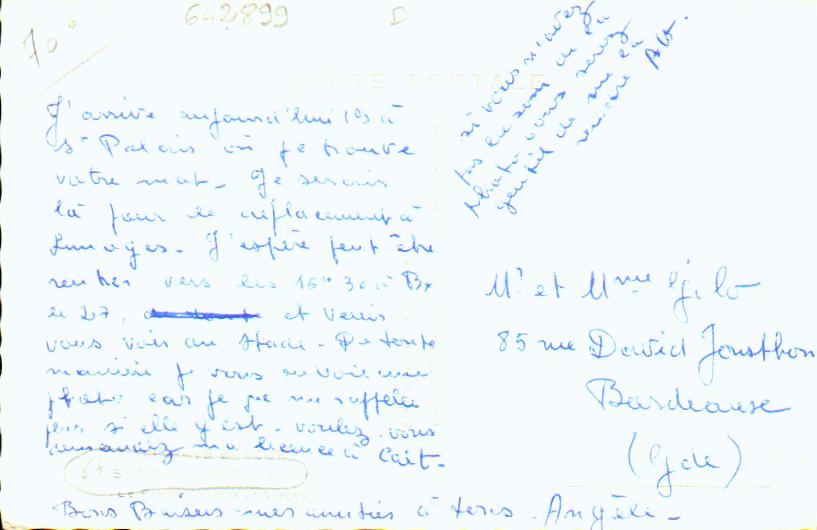 642899 D
70 b
CARTE POSTALE
J'arrive aujourd'hui 19 à
St Palais où je trouve
votre mot. Je serais
là pour le déplacement à
Limoges. J'espère peut être
rentrer vers les 16h30 à Bx
le 27, et venir
vous voir au stade. De toute
manière je vous envoie une
photo car je ne me rappelle
pas si elle y est. Voulez-vous
demander ma licence à
64 SAINT
Bons Baisers mes amitiés à tous. Angèle
si vous n'avez
pas besoin de la
photo vous serez
gentil de me la
rendre
Mr et Mme Gilo
85 rue David Jonsthon
Bordeaux
(Gde)